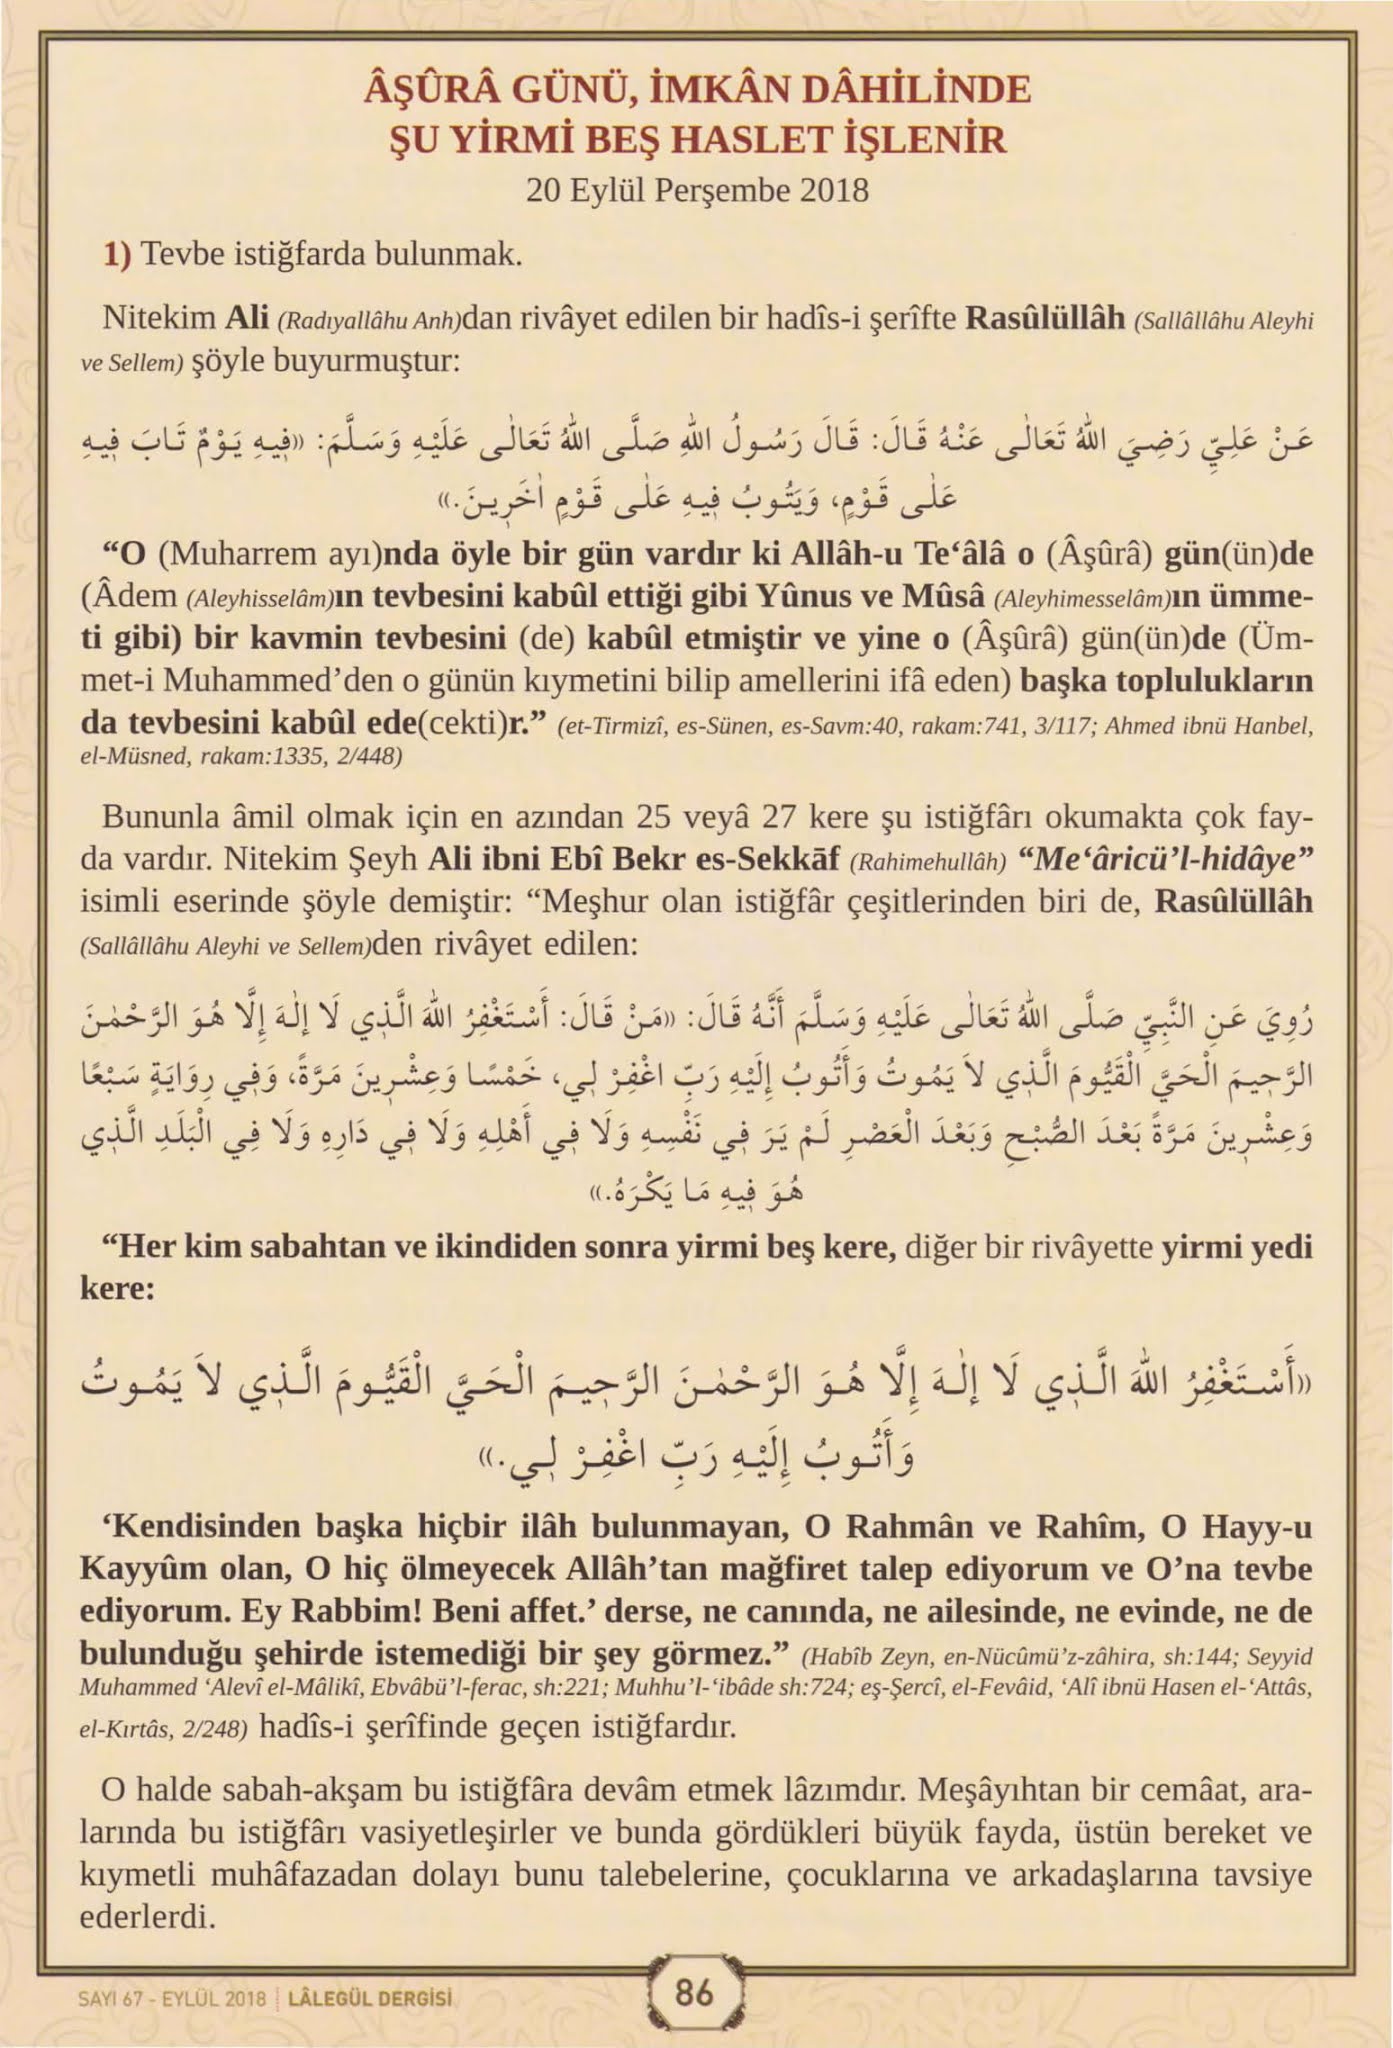 ÂŞÛRÂ GÜNÜ, İMKÂN DÂHİLİNDE
ŞU YİRMİ BEŞ HASLET İŞLENİR
20 Eylül Perşembe 2018
1) Tevbe istiğfarda bulunmak.
Nitekim Ali (Radıyallâhu Anh)dan rivâyet edilen bir hadîs-i şerîfte Rasûlüllâh (Sallâllâhu Aleyhi
ve Sellem) şöyle buyurmuştur:
عَنْ عَلِيٍّ رَضِيَ اللهُ تَعَالٰى عَنْهُ قَالَ: قَالَ رَسُولُ اللهِ صَلَّى اللهُ تَعَالٰى عَلَيْهِ وَسَلَّمَ: «فِيهِ يَوْمٌ تَابَ فِيهِ
عَلٰى قَوْمٍ، وَيَتُوبُ فِيهِ عَلٰى قَوْمٍ اٰخَرِينَ.»
“O (Muharrem ayı)nda öyle bir gün vardır ki Allâh-u Te‘âlâ o (Âşûrâ) gün(ün)de
(Âdem (Aleyhisselâm)ın tevbesini kabûl ettiği gibi Yûnus ve Mûsâ (Aleyhimesselâm)ın ümme-
ti gibi) bir kavmin tevbesini (de) kabûl etmiştir ve yine o (Âşûrâ) gün(ün)de (Üm-
met-i Muhammed’den o günün kıymetini bilip amellerini ifâ eden) başka toplulukların
da tevbesini kabûl ede(cekti)r.” (et-Tirmizî, es-Sünen, es-Savm:40, rakam:741, 3/117; Ahmed ibnü Hanbel,
el-Müsned, rakam:1335, 2/448)
Bununla âmil olmak için en azından 25 veyâ 27 kere şu istiğfârı okumakta çok fay-
da vardır. Nitekim Şeyh Ali ibni Ebî Bekr es-Sekkāf (Rahimehullâh) “Me‘âricü’l-hidâye”
isimli eserinde şöyle demiştir: “Meşhur olan istiğfâr çeşitlerinden biri de, Rasûlüllâh
(Sallâllâhu Aleyhi ve Sellem)den rivâyet edilen:
رُوِيَ عَنِ النَّبِيِّ صَلَّى اللهُ تَعَالٰى عَلَيْهِ وَسَلَّمَ أَنَّهُ قَالَ: «مَنْ قَالَ: أَسْتَغْفِرُ اللهَ الَّذِي لَا إِلٰهَ إِلَّا هُوَ الرَّحْمٰنَ
الرَّحِيمَ الْحَيَّ الْقَيُّومَ الَّذِي لاَ يَمُوتُ وَأَتُوبُ إِلَيْهِ رَبِّ اغْفِرْ لِي، خَمْسًا وَعِشْرِينَ مَرَّةً، وَفِي رِوَايَةٍ سَبْعًا
وَعِشْرِينَ مَرَّةً بَعْدَ الصُّبْحِ وَبَعْدَ الْعَصْرِ لَمْ يَرَ فِي نَفْسِهِ وَلَا فِي أَهْلِهِ وَلَا فِي دَارِهِ وَلَا فِي الْبَلَدِ الَّذِي
هُوَ فِيهِ مَا يَكْرَهُ.»
“Her kim sabahtan ve ikindiden sonra yirmi beş kere, diğer bir rivâyette yirmi yedi
kere:
«أَسْتَغْفِرُ اللهَ الَّذِي لَا إِلٰهَ إِلَّا هُوَ الرَّحْمٰنَ الرَّحِيمَ الْحَيَّ الْقَيُّومَ الَّذِي لاَ يَمُوتُ
وَأَتُوبُ إِلَيْهِ رَبِّ اغْفِرْ لِي.»
‘Kendisinden başka hiçbir ilâh bulunmayan, O Rahmân ve Rahîm, O Hayy-u
Kayyûm olan, O hiç ölmeyecek Allâh’tan mağfiret talep ediyorum ve O’na tevbe
ediyorum. Ey Rabbim! Beni affet.’ derse, ne canında, ne ailesinde, ne evinde, ne de
bulunduğu şehirde istemediği bir şey görmez.” (Habîb Zeyn, en-Nücûmü’z-zâhira, sh:144; Seyyid
Muhammed ‘Alevî el-Mâlikî, Ebvâbü’l-ferac, sh:221; Muhhu’l-‘ibâde sh:724; eş-Şercî, el-Fevâid, ‘Alî ibnü Hasen el-‘Attâs,
el-Kırtâs, 2/248) hadîs-i şerîfinde geçen istiğfardır.
O halde sabah-akşam bu istiğfâra devâm etmek lâzımdır. Meşâyıhtan bir cemâat, ara-
larında bu istiğfârı vasiyetleşirler ve bunda gördükleri büyük fayda, üstün bereket ve
kıymetli muhâfazadan dolayı bunu talebelerine, çocuklarına ve arkadaşlarına tavsiye
ederlerdi.
SAYI 67 - EYLÜL 2018 | LÂLEGÜL DERGİSİ
86